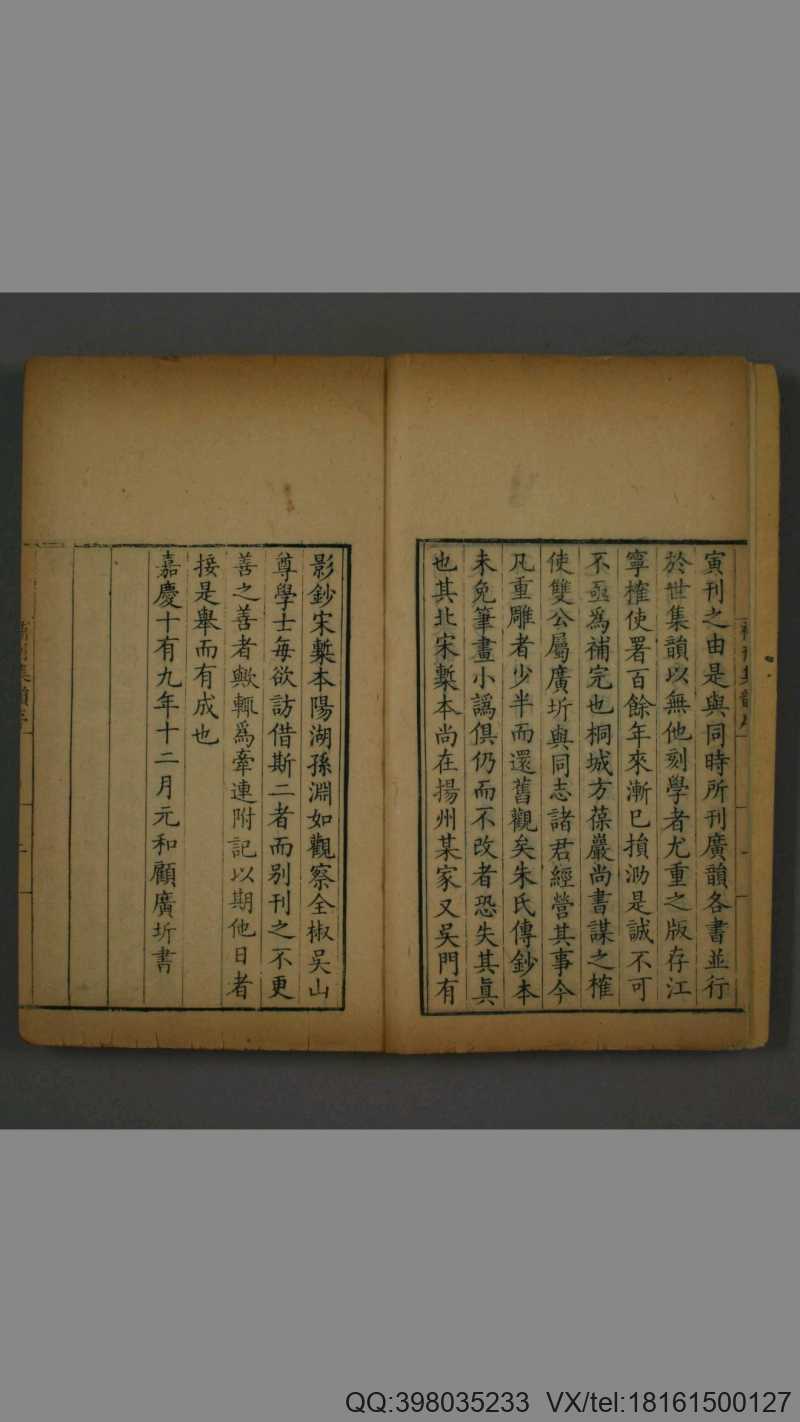 寅刊之由是與同時所刊廣韻各書並行
於世集韻以無他刻學者尤重之版存江
寧榷使署百餘年來漸已損泐是誠不可
不亟爲補完也桐城方葆巖尚書謀之榷
使雙公屬廣圻與同志諸君經營其事今
凡重雕者少半而還舊觀矣朱氏傳鈔本
未免筆畫小譌俱仍而不改者恐失其眞
也其北宋槧本尚在揚州某家又吳門有
影鈔宋槧本陽湖孫淵如觀察全椒吳山
尊學士每欲訪借斯二者而別刊之不更
善之善者歟輒爲牽連附記以期他日者
接是舉而有成也
嘉慶十有九年十二月元和顧廣圻書
QQ:398035233 VX/tel:18161500127